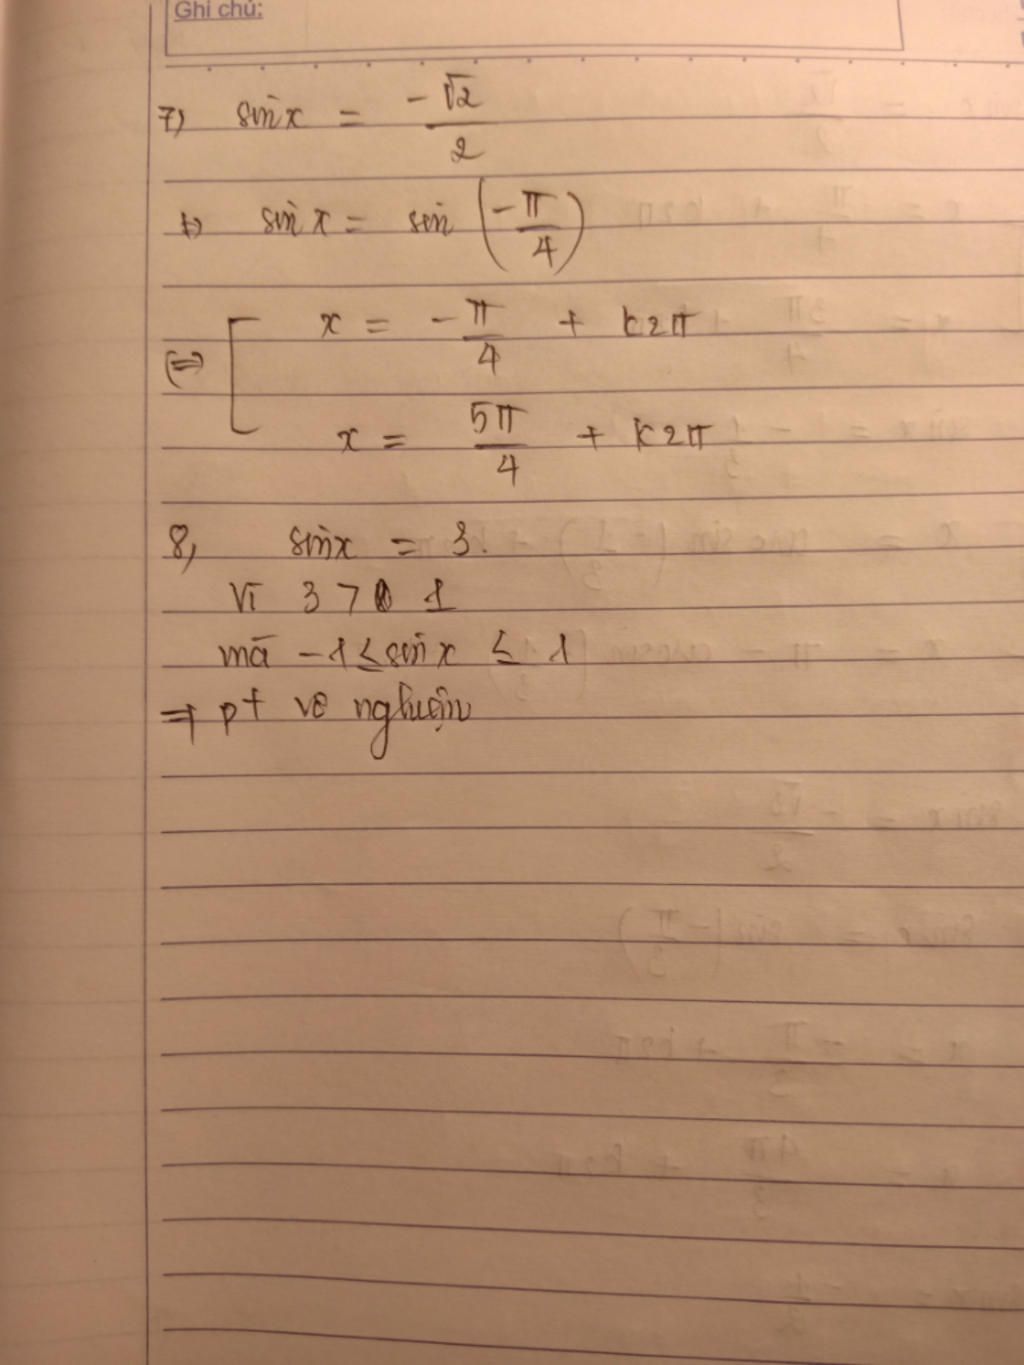 Ghi chú:
7) sin x = -√2/2
⇔ sin x = sin (-π/4)
⇔ [ x = -π/4 + k2π
x = 5π/4 + k2π
8, sin x = 3.
Vì 3 > 1
mà -1 ≤ sin x ≤ 1
⇒ pt vô nghiệm